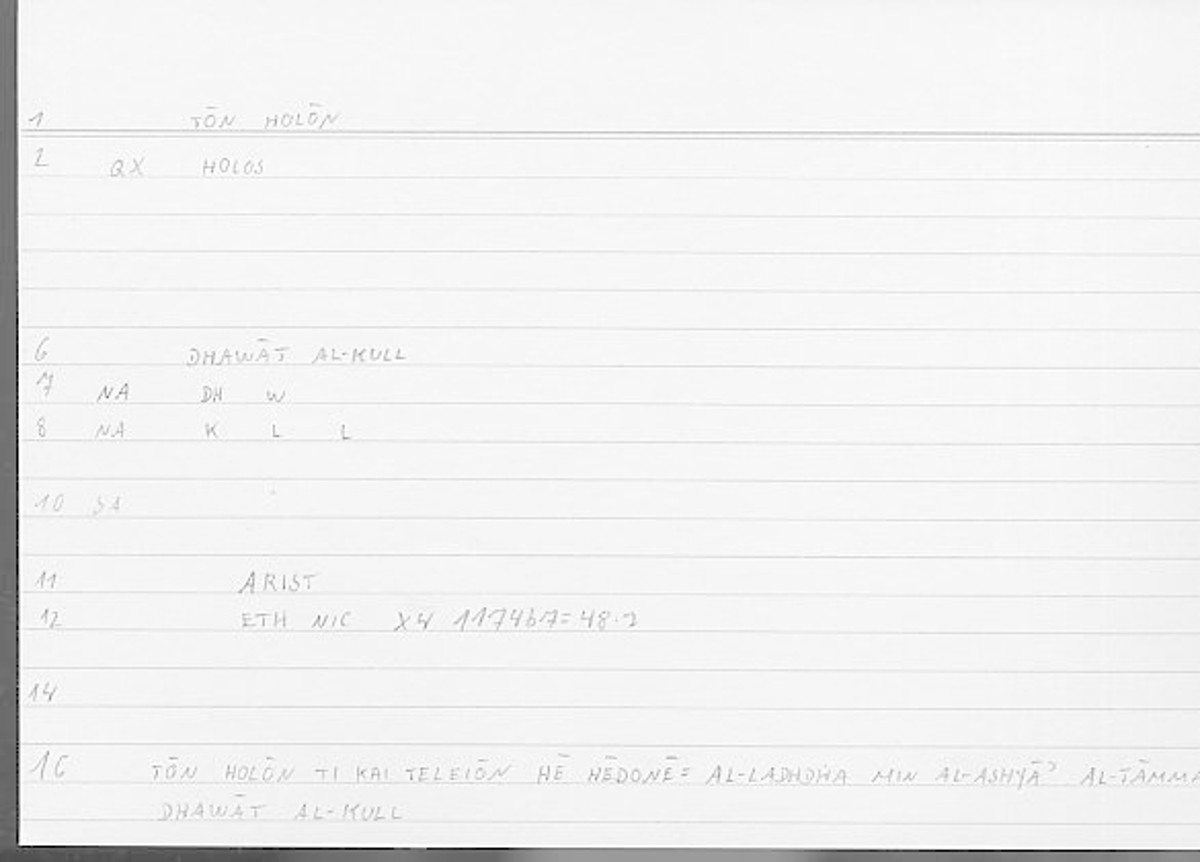 1 TŌN HOLŌN
2 QX HOLOS
6 DHAWĀT AL-KULL
7 NA DH W
8 NA K L L
10 SA
11 ARIST
12 ETH NIC X4 1174b7=48.2
14
16 TŌN HOLŌN TI KAI TELEIŌN HĒ HĒDONĒ= AL-LADHDHA MIN AL-ASHYĀʾ AL-TĀMMA
DHAWĀT AL-KULL